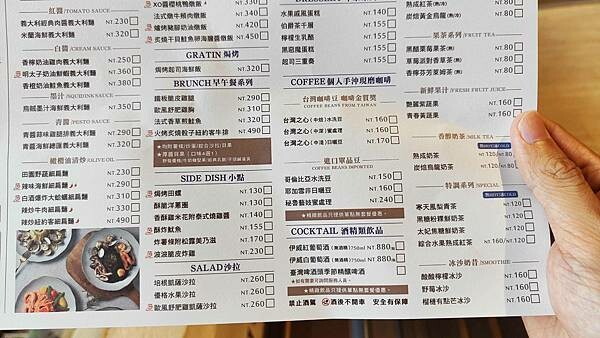 紅醬/TOMATO SAUCE
義大利經典肉醬義大利麵 NT.230
米蘭海鮮義大利麵 NT.320
白醬/CREAM SAUCE
香檸奶油雞肉義大利麵 NT.250
明太子奶油鮮蝦義大利麵 NT.360
香橙奶油鮭魚義大利麵 NT.380
墨汁/SQUID INK SAUCE
烏賊墨汁海鮮義大利麵 NT.350
青醬/PESTO SAUCE
青醬蒜味雞腿義大利麵 NT.290
青醬海鮮總匯義大利麵 NT.320
橄欖油清炒/OLIVE OIL
田園野蔬細扁麵 NT.230
辣味海鮮細扁麵 NT.320
白酒爆炒大蛤蠣細扁麵 NT.360
辣炒牛肉細扁麵 NT.450
辣炒紐約客細扁麵 NT.490
XO醬櫻桃鴨燉飯 NT.330
法式燉牛頰肉燉飯 NT.340
爐烤豬腳奶油燉飯 NT.450
炙燒干貝鮭魚卵海膽醬燉飯 NT.450
GRATIN 焗烤
焗烤起司海鮮飯 NT.340
BRUNCH 早午餐系列
鐵板脆皮雞腿 NT.290
歐風舒肥雞胸 NT.310
法式香草煎鮭魚 NT.320
火烤炙燒骰子紐約客牛排 NT.490
SIDE DISH 小點
焗烤田螺 NT.130
酥脆洋薯圈 NT.130
香酥雞米花附泰式燒雞醬 NT.140
酥炸魷魚 NT.155
炸薯條附松露美乃滋 NT.170
波浪脆皮炸雞 NT.230
SALAD 沙拉
培根凱薩沙拉 NT.260
優格水果沙拉 NT.260
歐風舒肥雞凱薩沙拉 NT.260
水果戚風蛋糕 NT.140
伯爵茶千層 NT.155
檸檬生乳酪 NT.155
黑惡魔蛋糕 NT.155
起司三重奏 NT.155
COFFEE 個人手沖現磨咖啡
台灣咖啡豆 咖啡金質獎
COFFEE BEANS FROM TAIWAN
台灣之心(中焙)水洗豆 NT.160
台灣之心(中深)蜜處理 NT.170
台灣之心(中淺)日曬豆 NT.170
進口單品豆
COFFEE BEANS IMPORTED
哥倫比亞水洗豆 NT.150
耶加雪菲日曬豆 NT.160
秘魯藝妓蜜處理 NT.240
★精緻飲品只提供單點無套餐優惠。
COCKTAIL 酒精類飲品
伊威紅葡萄酒(無酒精)750ml NT.880
伊威白葡萄酒(無酒精)750ml NT.880
臺灣啤酒頭季節精釀啤酒
★精緻飲品只提供單點無套餐優惠。
禁止酒駕 酒後不開車 安全有保障
熟成紅茶(熱) NT.80
炭焙黃金烏龍(熱) NT.80
果茶系列/FRUIT TEA
黑醋栗莓果茶(熱) NT.80
草莓派對香草茶(熱) NT.80
香檸芬芳家姆茶(熱) NT.80
新鮮果汁/FRESH FRUIT JUICE
艷麗紫蔬果 NT.160
青春黃蔬果 NT.160
香醇奶茶/MILK TEA
熟成奶茶 NT.120/NT.80
炭焙烏龍奶茶 NT.120
特調系列/SPECIAL
寒天鳳梨青茶 NT.120
黑糖粉粿鮮奶茶 NT.120
太妃焦糖鮮奶茶 NT.120
綜合水果熟成紅茶 NT.160
冰沙奶昔/SMOOTHIE
酸酸檸檬冰沙 NT.160
野莓冰沙 NT.160
榴槤有點芒冰沙 NT.160